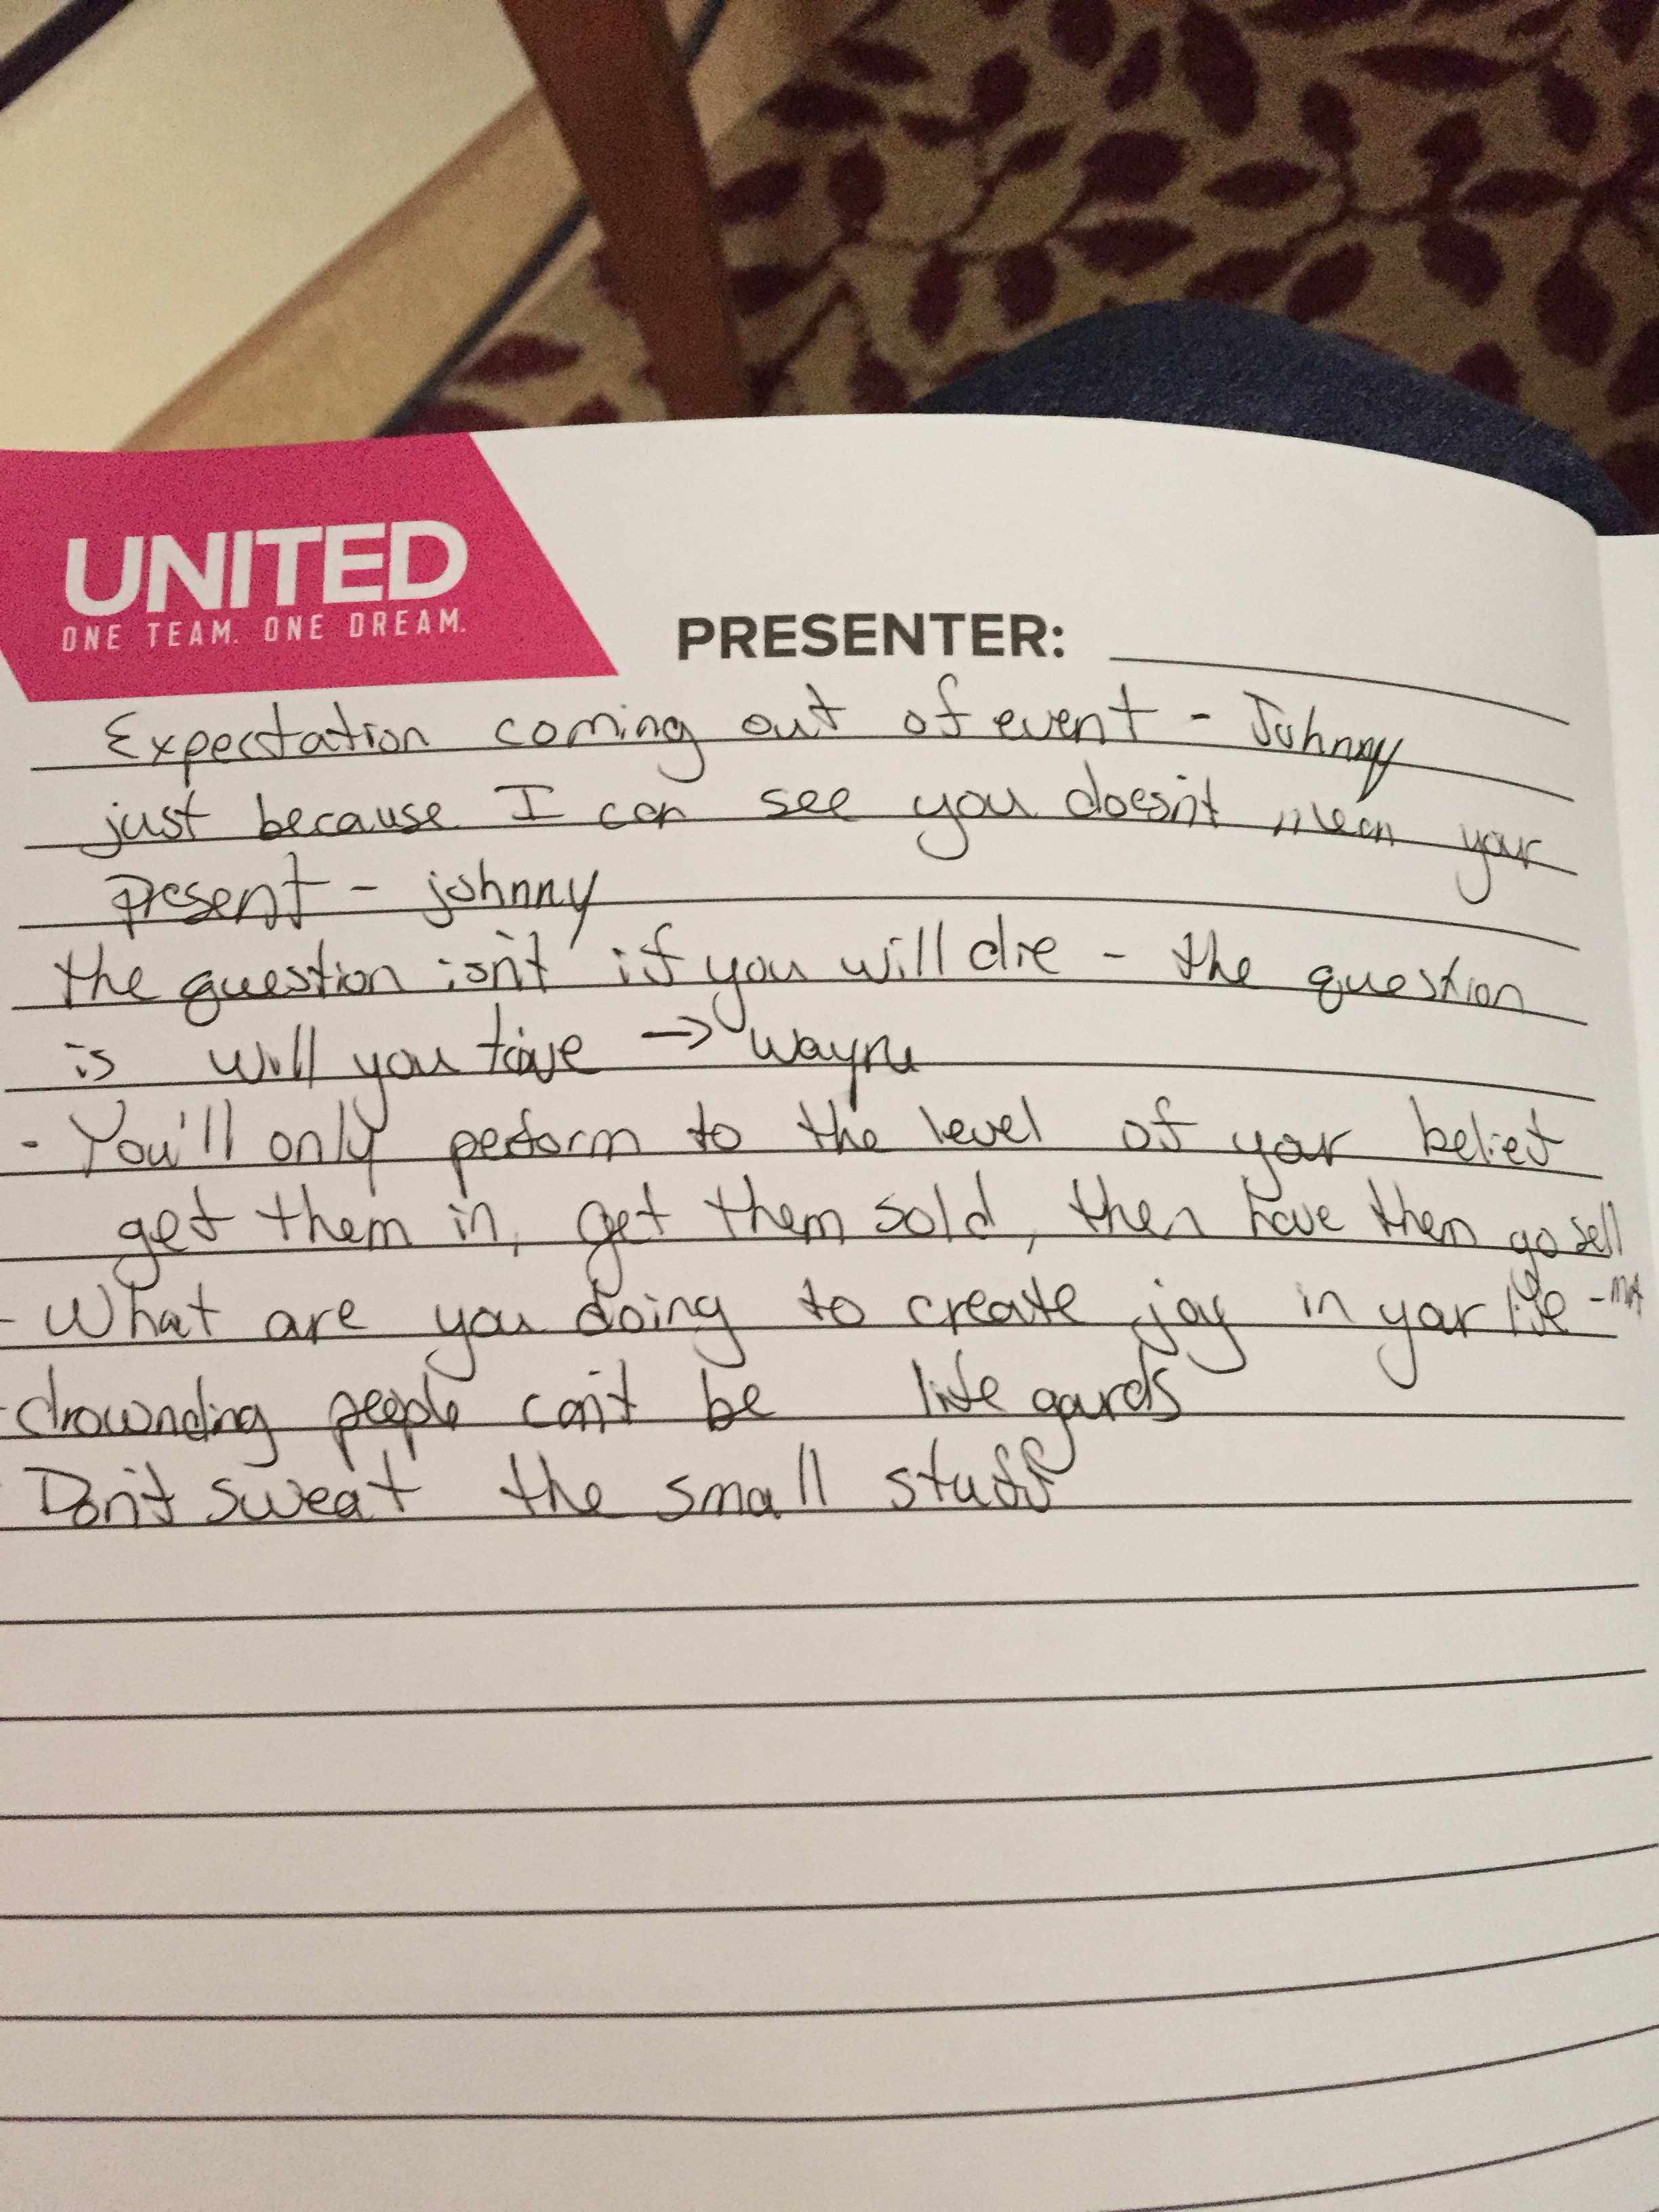 UNITED
ONE TEAM. ONE DREAM.
PRESENTER:
Expectation coming out of event - Johnny
just because I can see you doesn't mean your
present - johnny
the question isn't if you will die - the question
is will you live → wayne
- You'll only perform to the level of your belief
get them in, get them sold, then have them go sell
- What are you doing to create joy in your life -
- drownding people can't be life gards
Don't sweat the small stuff